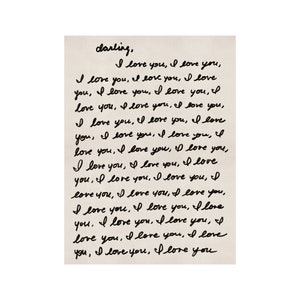 darling,
I love you, I love you,
I love you, I love you, I love
you, I love you, I love you, I
love you, I love you, I love you,
I love you, I love you, I love
you, I love you, I love you, I
love you, I love you, I love you,
I love you, I love you, I love
you, I love you, I love you, I
love you, I love you, I love you,
I love you, I love you, I love
you, I love you, I love you, I
love you, I love you, I love
you, I love you, I love you